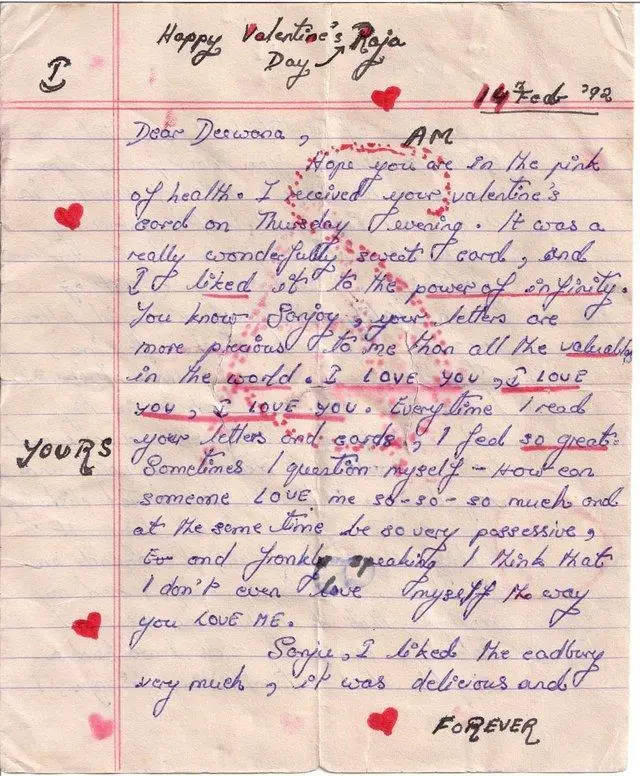 Happy Valentine's Raja
Day
I
14th Feb '92
Dear Deewana, AM
Hope you are in the pink
of health. I received your valentine's
card on Thursday evening. It was a
really wonderfully sweet card, and
I liked it to the power of infinity.
You know Sanjay, your letters are
more precious to me than all the valuables
in the world. I LOVE YOU, I LOVE
YOU, I LOVE YOU. Everytime I read
your letters and cards, I feel so great.
YOURS
Sometimes I question myself - How can
someone LOVE me so-so-so much and
at the same time be so very possessive,
and frankly speaking I think that
I don't even love myself the way
you LOVE ME.
Sanju, I liked the cadbury
very much, it was delicious and
FOREVER